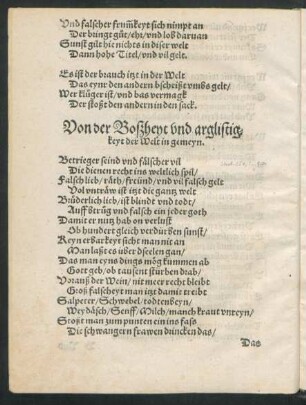 Vnd falscher frumkeyt sich nimpt an
Der bringt gůt/ ehr/ vnd lob daruan
Sunst gilt hie nichts in diser welt
Dann hohe Titel/ vnd vil gelt.
Es ist der brauch itzt in der Welt
Das eynr den andern bscheißt vmbs gelt/
Wer klůger ist/ vnd bas vermagk
Der stoßt den andern in den sack.
Von der Boßheyt vnd arglistig-
keyt der Welt in gemeyn.
Betrieger seind vnd fälscher vil
Die dienen recht ins weltlich spil/
Falsch lieb/ räth/ freünd/ vnd vil falsch gelt
Vol vntrãw ist itzt die gantz welt
Brůderlich lieb/ ist blindt vnd todt/
Auff btrüg vnd falsch ein jeder goth
Damit er nutz hab on verlust
Ob hundert gleich verdürben sunst/
Keyn erbarkeyt sicht man nit an
Man laßt es über d seelen gan/
Das man eyns dings mög kummen ab
Gott geb/ ob tausent stürben drab/
Vorauß der Wein/ nit meer recht bleibt
Groß falscheyt man itzt damit treibt
Salpeter/ Schwebel/ todtenbeyn/
Weydäsch/ Senff/ Milch/ manch kraut vnreyn/
Stoßt man zum punten ein ins faß
Die schwangern frawen drincken das/
Das